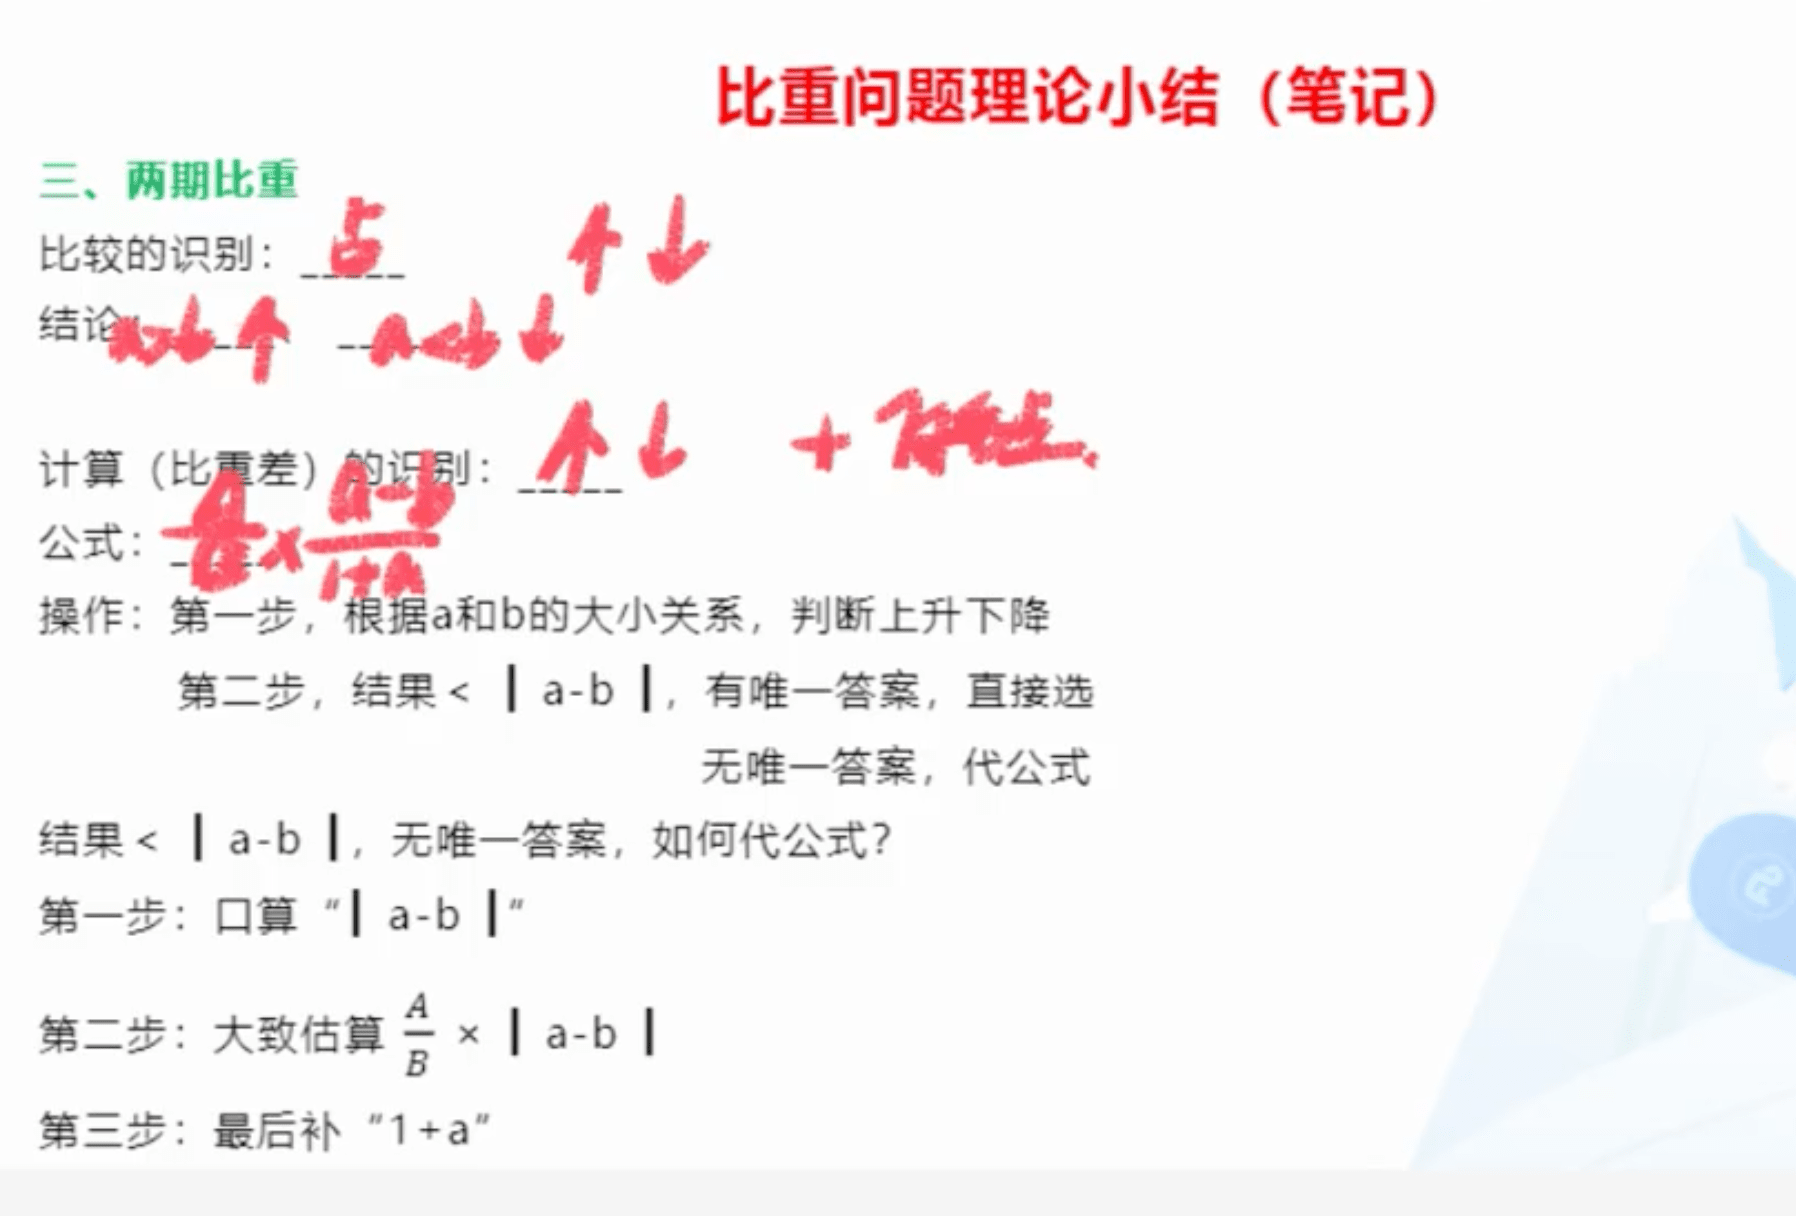 比重问题理论小结（笔记）
三、两期比重
比较的识别：占 ↑↓
结论：a>b↑ a<b↓
计算（比重差）的识别：↑↓ +
公式：A/B×(a-b)/(1+a)
操作：第一步，根据a和b的大小关系，判断上升下降
第二步，结果<｜a-b｜，有唯一答案，直接选
无唯一答案，代公式
结果<｜a-b｜，无唯一答案，如何代公式？
第一步：口算“｜a-b｜”
第二步：大致估算 A/B ×｜a-b｜
第三步：最后补“1+a”